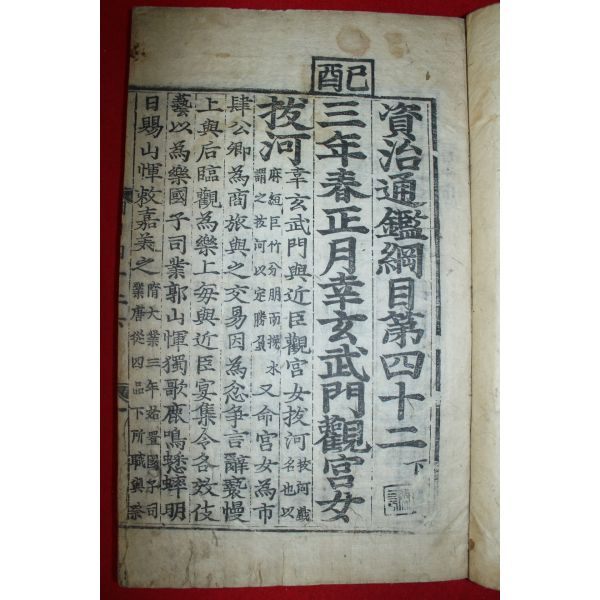 己酉
資治通鑑綱目第四十二下
三年春正月幸玄武門觀宮女
拔河幸玄武門與近臣觀宮女拔河拔河戲名也以
麻絙巨竹分朋而挽水謂之拔河以定勝負又命宮女為市
肆公卿為商旅與之交易因為忿爭言辭褻慢
上與后臨觀為樂上每與近臣宴集令各效伎
藝以為樂國子司業郭山惲獨歌鹿鳴蟋蟀明
日賜山惲敕嘉美之隋大業三年始置國子司業唐從四品下所職與祭